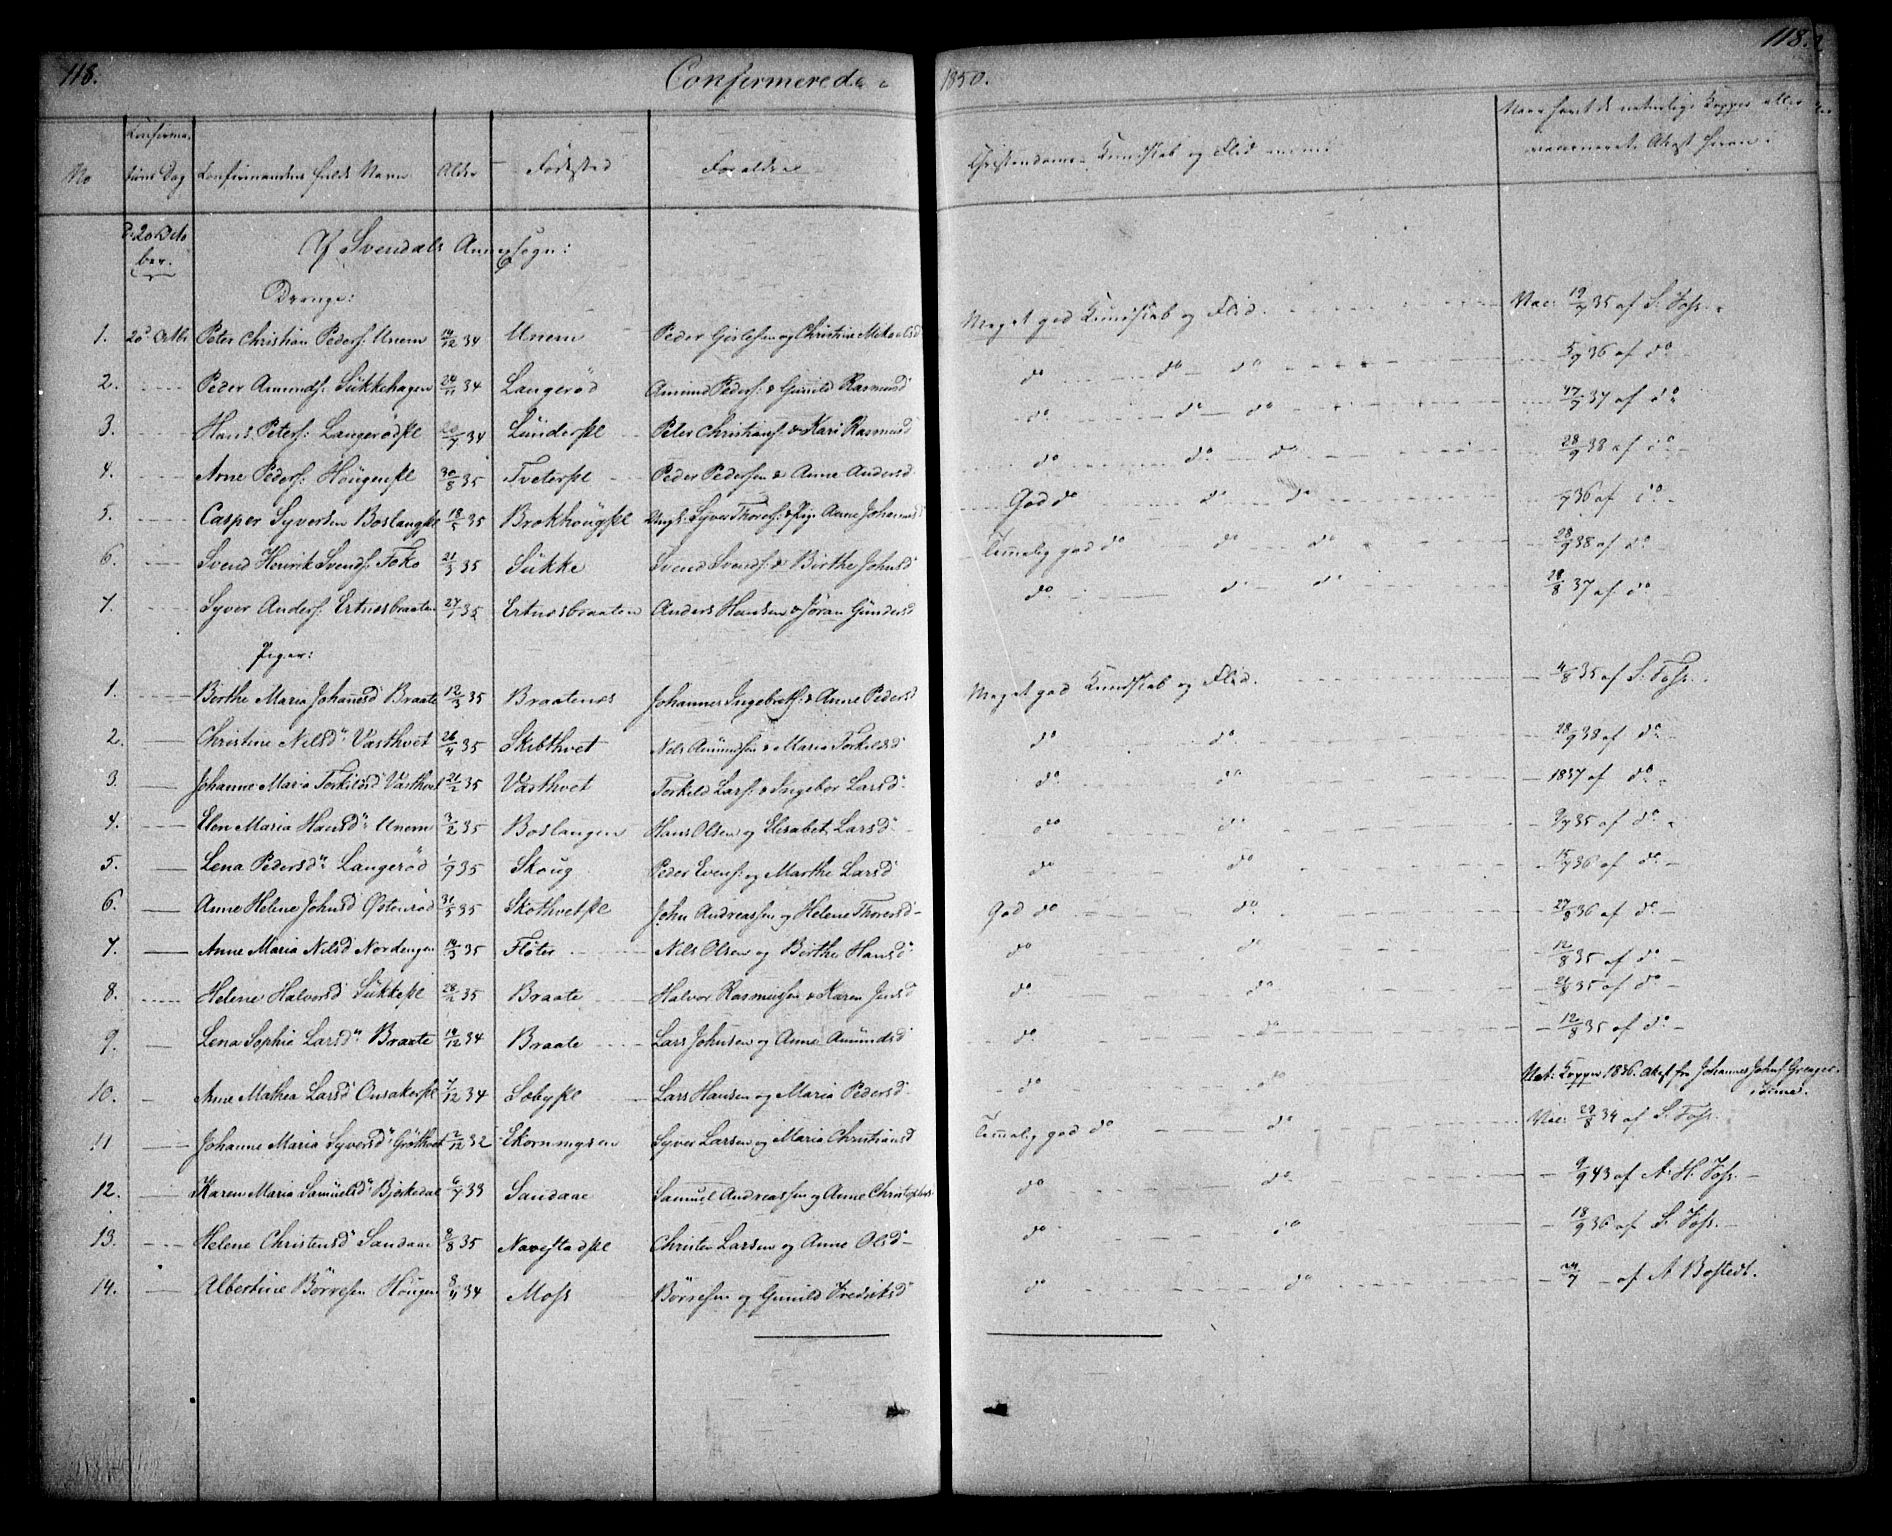 118.
Confirmerede i 1850.
118.
No
Confirma-
tions Dag
Confirmandens fulde Navn
Alder
Fødested
Forældre
Christendoms Kundskab og Flid
Naar havt de naturlige Kopper eller
vaccineret. Attest herom:
D: 20 Octo
ber.
Af Svendals Annexsogn:
Drenge:
1. 20d Octbr Peter Christian Peders: Unem 14/12 34 Unem Peder Giorlesen og Christine Mikaelsd Meget god Kundskab og Flid. Vac: 19/7 35 af S: Foss.
2. Peder Amunds: Sükkehagen 24/11 34 Langerød Amund Peders: & Gunild Rasmusd do do do 5/9 36 af do
3. Hans Peters: Langerødpl 34 Lünderpl Peter Christians: & Kari Rasmusd do do do 37 af do
4. Arne Peders: Höugenpl 30/8 35 Tveterpl Peder Pedersen & Anne Andersd do do do 28/9 38 af do
5. Casper Syversen Boslangpl 18/5 35 Brokhöugpl Ungk: Syver Thores: & Pige Anne Johannesd God do do do 36 af do
6. Svend Henrik Svends: Toko 21/3 35 Sükke Svend Svends: & Birthe Johnsd Temmelig god do do do 28/9 38 af do
7. Syver Anders: Ertnesbraaten 27/7 35 Ertnesbraaten Anders Hansen & Jöran Gündersd do do do 28/8 37 af do
Piger:
1. Birthe Maria Johanesd Braate 12/3 35 Braatenes Johannes Ingebrets: & Anne Pedersd Meget god Kundskab og Flid. 4/8 35 af S: Foss.
2. Christine Nilsd Vasthvet 26/4 35 Skibthvet Nils Amundsen & Maria Torkilsd do do 28/9 38 af do
3. Johanne Maria Torkildsd Vasthvet 21/2 35 Vasthvet Torkild Lars: & Ingebor Larsd do do 1837 af do
4. Elen Maria Hansd Unem 3/2 35 Boslangen Hans Olsen og Elisabet Larsd do do 9/7 35 af do
5. Lena Pedersd Langerød 1/9 35 Skoug Peder Evens: og Marthe Larsd do do 15/9 36 af do
6. Anne Helene Johnsd Ostenrød 31/5 35 Skothvetpl John Andreassen og Helene Thoresd God do do 27/8 36 af do
7. Anne Maria Nilsd Nordengen 14/3 35 Fløter Nils Olsen og Birthe Hansd do do 12/8 35 af do
8. Helene Halvorsd Sükkepl 28/2 35 Braate Halvor Rasmusen & Karen Jensd do do 35 af do
9. Lena Sophie Larsd Braate 14/12 34 Braate Lars Johnsen og Anne Amündsd do do 12/8 35 af do
10. Anne Mathea Larsd Onsakerpl 7/12 34 Sobypl Lars Hansen og Maria Pedersd do do Nat: Kopper 1836. Atest fra Johannes Johns: Grenger
i Simo.
11 Johanne Maria Syversd Gröthvet 2/12 32 Skornmysen Syver Larsen og Maria Christiansd Temmelig god do do Vac: 29/8 34 af S. Foss.
12. Karen Maria Samuelsd Bjerkedal 6/7 33 Sandaae Samuel Andreassen og Anne Christophers do do 9/9 43 af A: H: Foss.
13. Helene Christensd Sandaae 8/8 35 Navestadpl Christen Larsen og Anne Olsd do do 18/9 36 af S. Foss.
14. Albertine Börresen Höugen 8/11 34 Moss Börresen og Gunild Fredriksd do do 24/7 af A Bostedt.